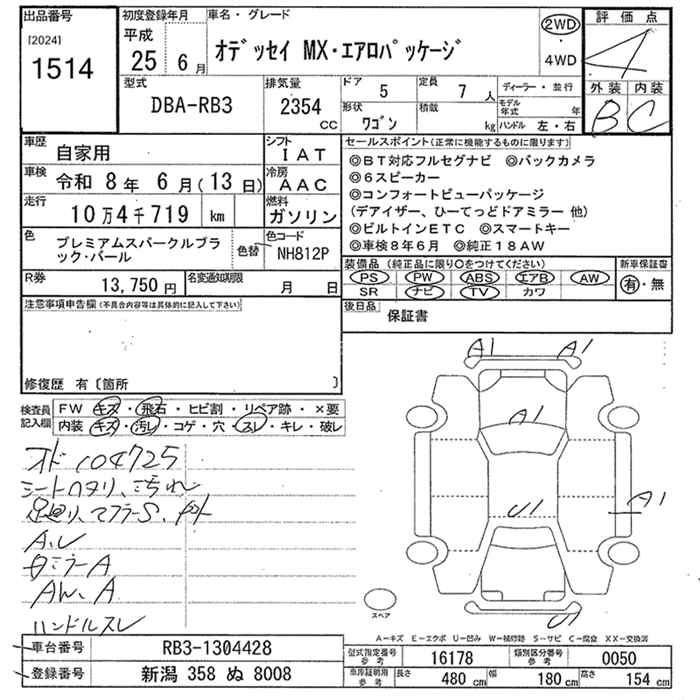 出品番号
[2024]
1514
初度登録年月
平成
25 6月
車名・グレード
オデッセイ MX・エアロパッケージ
2WD
・
4WD
評価点
4
外装 内装
B C
型式
DBA-RB3
排気量
2354
CC
ドア 5
定員 7人
形状 ワゴン
積載 kg
ディーラー・並行
モデル年式 年
ハンドル 左・右
車歴 自家用
シフト IAT
車検 令和 8年 6月(13日)
冷房 AAC
走行 10万4千719 km
燃料 ガソリン
色 プレミアムスパークルブラック・パール
色替
色コード NH812P
R券 13,750円
名変通知期限 月 日
セールスポイント(正常に機能するものに限ります)
◎BT対応フルセグナビ ◎バックカメラ
◎6スピーカー
◎コンフォートビューパッケージ
(デアイザー、ひーてっどドアミラー 他)
◎ビルトインETC ◎スマートキー
◎車検8年6月 ◎純正18AW
装備品(純正品に限り〇をつけてください)
PS PW ABS エアB AW
SR ナビ TV カワ
新車保証書
有・無
後日品 保証書
注意事項申告欄(不具合内容等は具体的に記入して下さい)
修復歴 有〔箇所 〕
検査員記入欄
FW キズ・飛石・ヒビ割・リペア跡・×要
内装 キズ・汚レ・コゲ・穴・スレ・キレ・破レ
オド104725
A、U
ハンドルスレ
A1 A1
A1
A1
U1
U1
スペア
A-キズ E-エクボ U-凹み W-補修跡 S-サビ C-腐食 XX-交換済
車台番号 RB3-1304428
登録番号 新潟 358 ぬ 8008
型式指定番号 参考 16178
類別区分番号 参考 0050
車庫証明用 参考 長さ 480 cm 幅 180 cm 高さ 154 cm